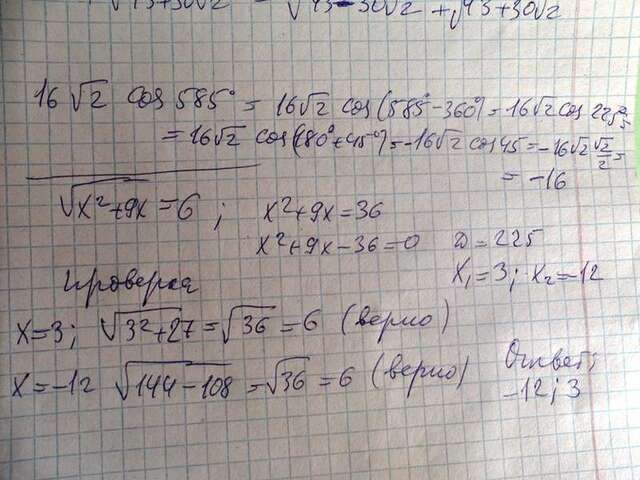 √43+30√2 = √43-30√2 + √43+30√2
16√2 cos 585° = 16√2 cos(585°-360°) = 16√2 cos 225°
= 16√2 cos(180°+45°) = -16√2 cos 45 = -16√2 √2/2 =
= -16
√x²+9x = 6 ; x²+9x=36
x²+9x-36=0 D=225
x₁=3; x₂=-12
Проверка
x=3; √3²+27 = √36 = 6 (верно)
x=-12 √144-108 = √36 = 6 (верно)
Ответ:
-12; 3